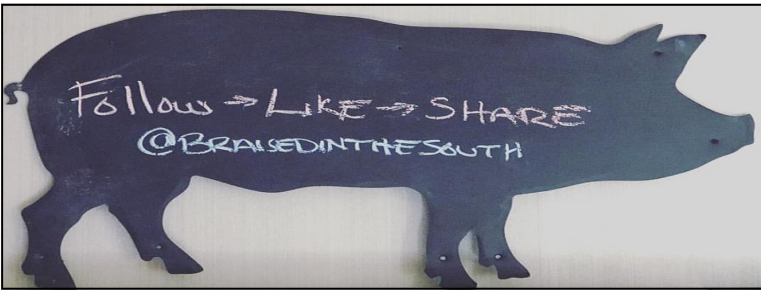 Follow → LIKE → SHARE
@BRAISEDINTHESOUTH